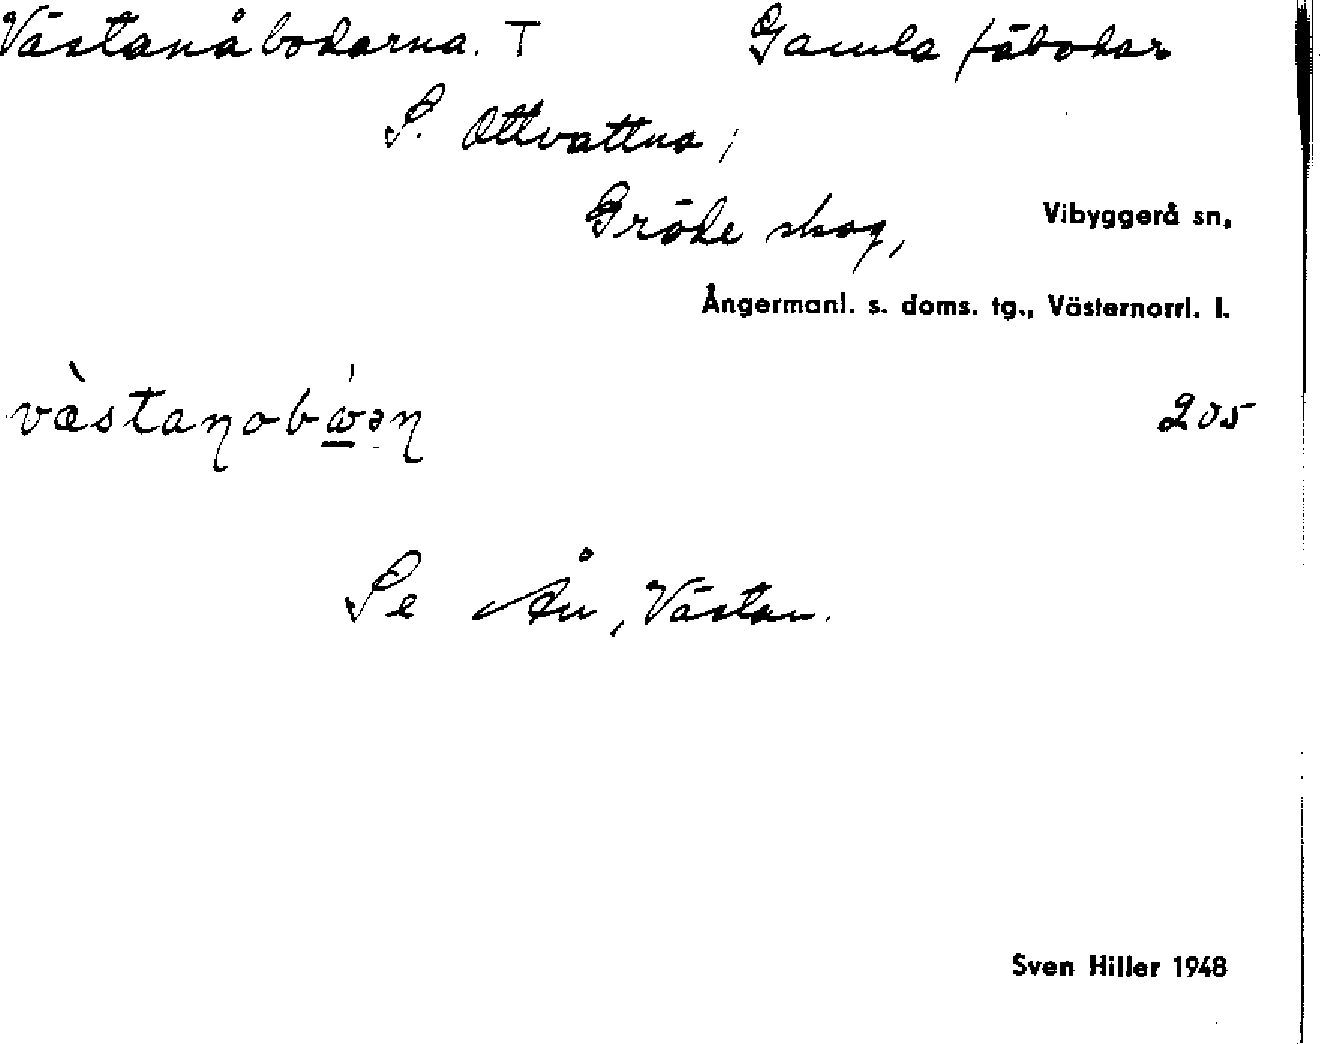 Västanåbodarna. T Gamla fäbodar
S. Ottvattna,
Gröde skog, Vibyggerå sn,
Ångermanl. s. doms. tg., Västernorrl. l.
205
Se Ån, Västan.
Sven Hiller 1948